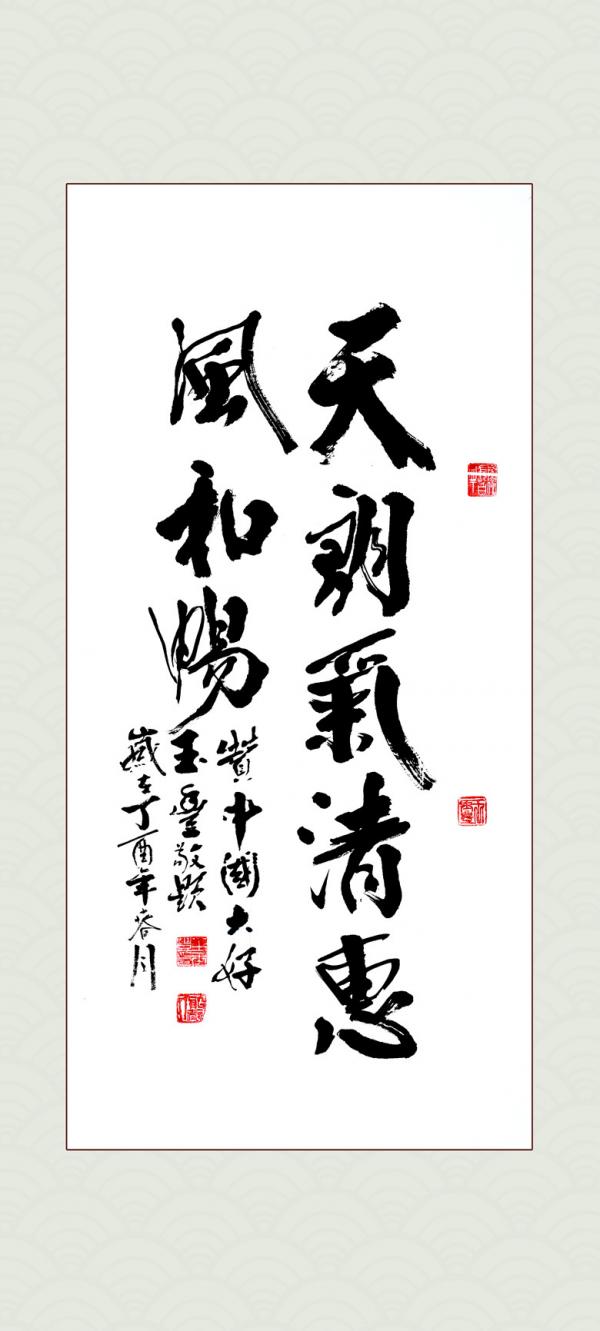 天朗氣清惠
風和暢
贊中國大好
玉豐敬題
歲在丁酉年春月